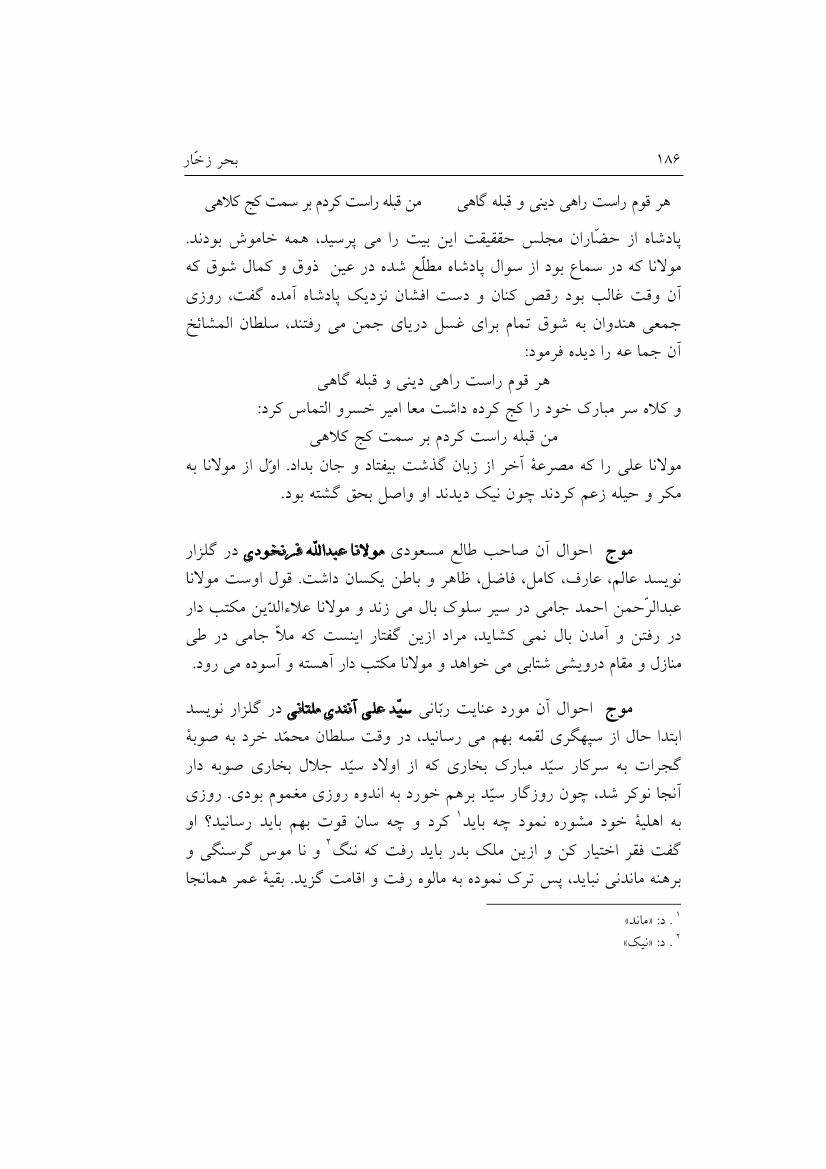 ۱۸۶ بحر زخّار
هر قوم راست راهی دینی و قبله گاهی من قبله راست کردم بر سمت کج کلاهی
پادشاه از حضّاران مجلس حققیقت این بیت را می پرسید، همه خاموش بودند.
مولانا که در سماع بود از سوال پادشاه مطلّع شده در عین ذوق و کمال شوق که
آن وقت غالب بود رقص کنان و دست افشان نزدیک پادشاه آمده گفت، روزی
جمعی هندوان به شوق تمام برای غسل دریای جمن می رفتند، سلطان المشائخ
آن جما عه را دیده فرمود:
هر قوم راست راهی دینی و قبله گاهی
و کلاه سر مبارک خود را کج کرده داشت معا امیر خسرو التماس کرد:
من قبله راست کردم بر سمت کج کلاهی
مولانا علی را که مصرعۀ آخر از زبان گذشت بیفتاد و جان بداد. اوّل از مولانا به
مکر و حیله زعم کردند چون نیک دیدند او واصل بحق گشته بود.
موج احوال آن صاحب طالع مسعودی مولانا عبداللّه فرنخودي در گلزار
نویسد عالم، عارف، کامل، فاضل، ظاهر و باطن یکسان داشت. قول اوست مولانا
عبدالرّحمن احمد جامی در سیر سلوک بال می زند و مولانا علاءالدّین مکتب دار
در رفتن و آمدن بال نمی کشاید، مراد ازین گفتار اینست که ملاّ جامی در طی
منازل و مقام درویشی شتابی می خواهد و مولانا مکتب دار آهسته و آسوده می رود.
موج احوال آن مورد عنایت ربّانی سیّد علی آفندي ملتانی در گلزار نویسد
ابتدا حال از سپهگری لقمه بهم می رسانید، در وقت سلطان محمّد خرد به صوبۀ
گجرات به سرکار سیّد مبارک بخاری که از اولاد سیّد جلال بخاری صوبه دار
آنجا نوکر شد، چون روزگار سیّد برهم خورد به اندوه روزی مغموم بودی. روزی
به اهلیۀ خود مشوره نمود چه باید۱ کرد و چه سان قوت بهم باید رسانید؟ او
گفت فقر اختیار کن و ازین ملک بدر باید رفت که ننگ۲ و نا موس گرسنگی و
برهنه ماندنی نباید، پس ترک نموده به مالوه رفت و اقامت گزید. بقیۀ عمر همانجا
۱ . د: «ماند»
۲ . د: «نیک»